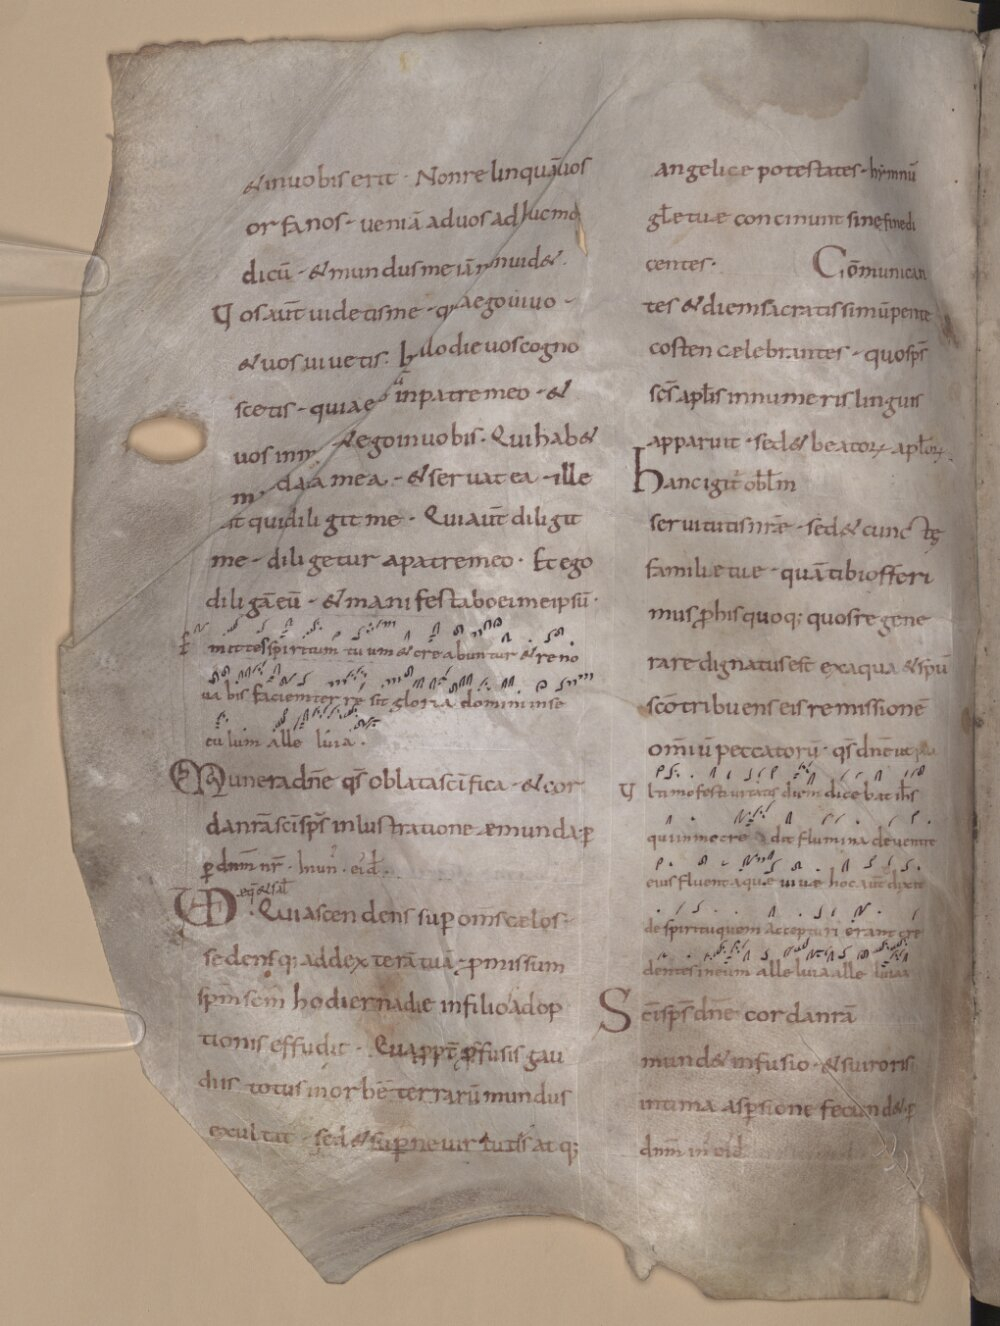 & inuobis erit · Non relinquā uos
orfanos · ueniā ad uos adhuc mo
dicū · & mundus me iā n̄ uid& ·
Vos aūt uidetis me · q͛a ego uiuo ·
& uos uiuetis. In illo die uos cogno
scetis · quia ego in patre meo · &
uos in me & ego in uobis · Qui hab&
mandata mea · & seruat ea · ille
est qui diligit me · Qui aūt diligit
me · diligetur a patre meo · Et ego
diligā eū · & manifestabo ei meipsū ·
Emittes sp̄iritum tuum & creabuntur & reno
uabis faciem terrę sit gloria domini in se
culum alleluia ·
Munera dn̄e qs̄ oblata sc̄ifica · & cor
da nr̄a sc̄i sp̄s inlustratione emunda · p̄
p̄ dnm̄ nr̄ · in un̄ · eid̄ ·
VD eq̄ & sal̄ · Qui ascendens sup om̄s celos ·
sedensq; ad dexterā tuā · p̄missum
sp̄m sc̄m hodierna die in filios adop
tionis effudit · Qua ppt̄ p̄fusis gau
diis totus in orbē terrarū mundus
exultat · sed & sup̄ne uirtutes atq;
angelice potestates · hymnū
gl̄e tue concinunt sine fine di
centes ·     Cōmunican
tes & diem sacratissimū pente
costen celebrantes · quo sp̄s
sc̄s apl̄is innumeris linguis
apparuit · sed & beatoꝝ apl̄oꝝ
Hanc igit̄ obl̄m
seruitutis nr̄e · sed & cunctę
familie tue · quā tibi offeri
mus p̄ his quoq; quos regene
rare dignatus est ex aqua & sp̄u
sc̄o tribuens eis remissionē
om̄iū peccatorū · qs̄ dn̄e ut pla
Vltimo festiuitatis diem dicebat ih̄s
qui in me credit flumina de uentre
eius fluent aque uiue hoc aūt dixit
de spiritu quem accepturi erant cre
dentes in eum alleluia alleluiaa
Sc̄i sp̄s dn̄e corda nr̄a
mund& infusio · & sui roris
intima asp̄sione fecund& · p̄
dnm̄ in eid̄